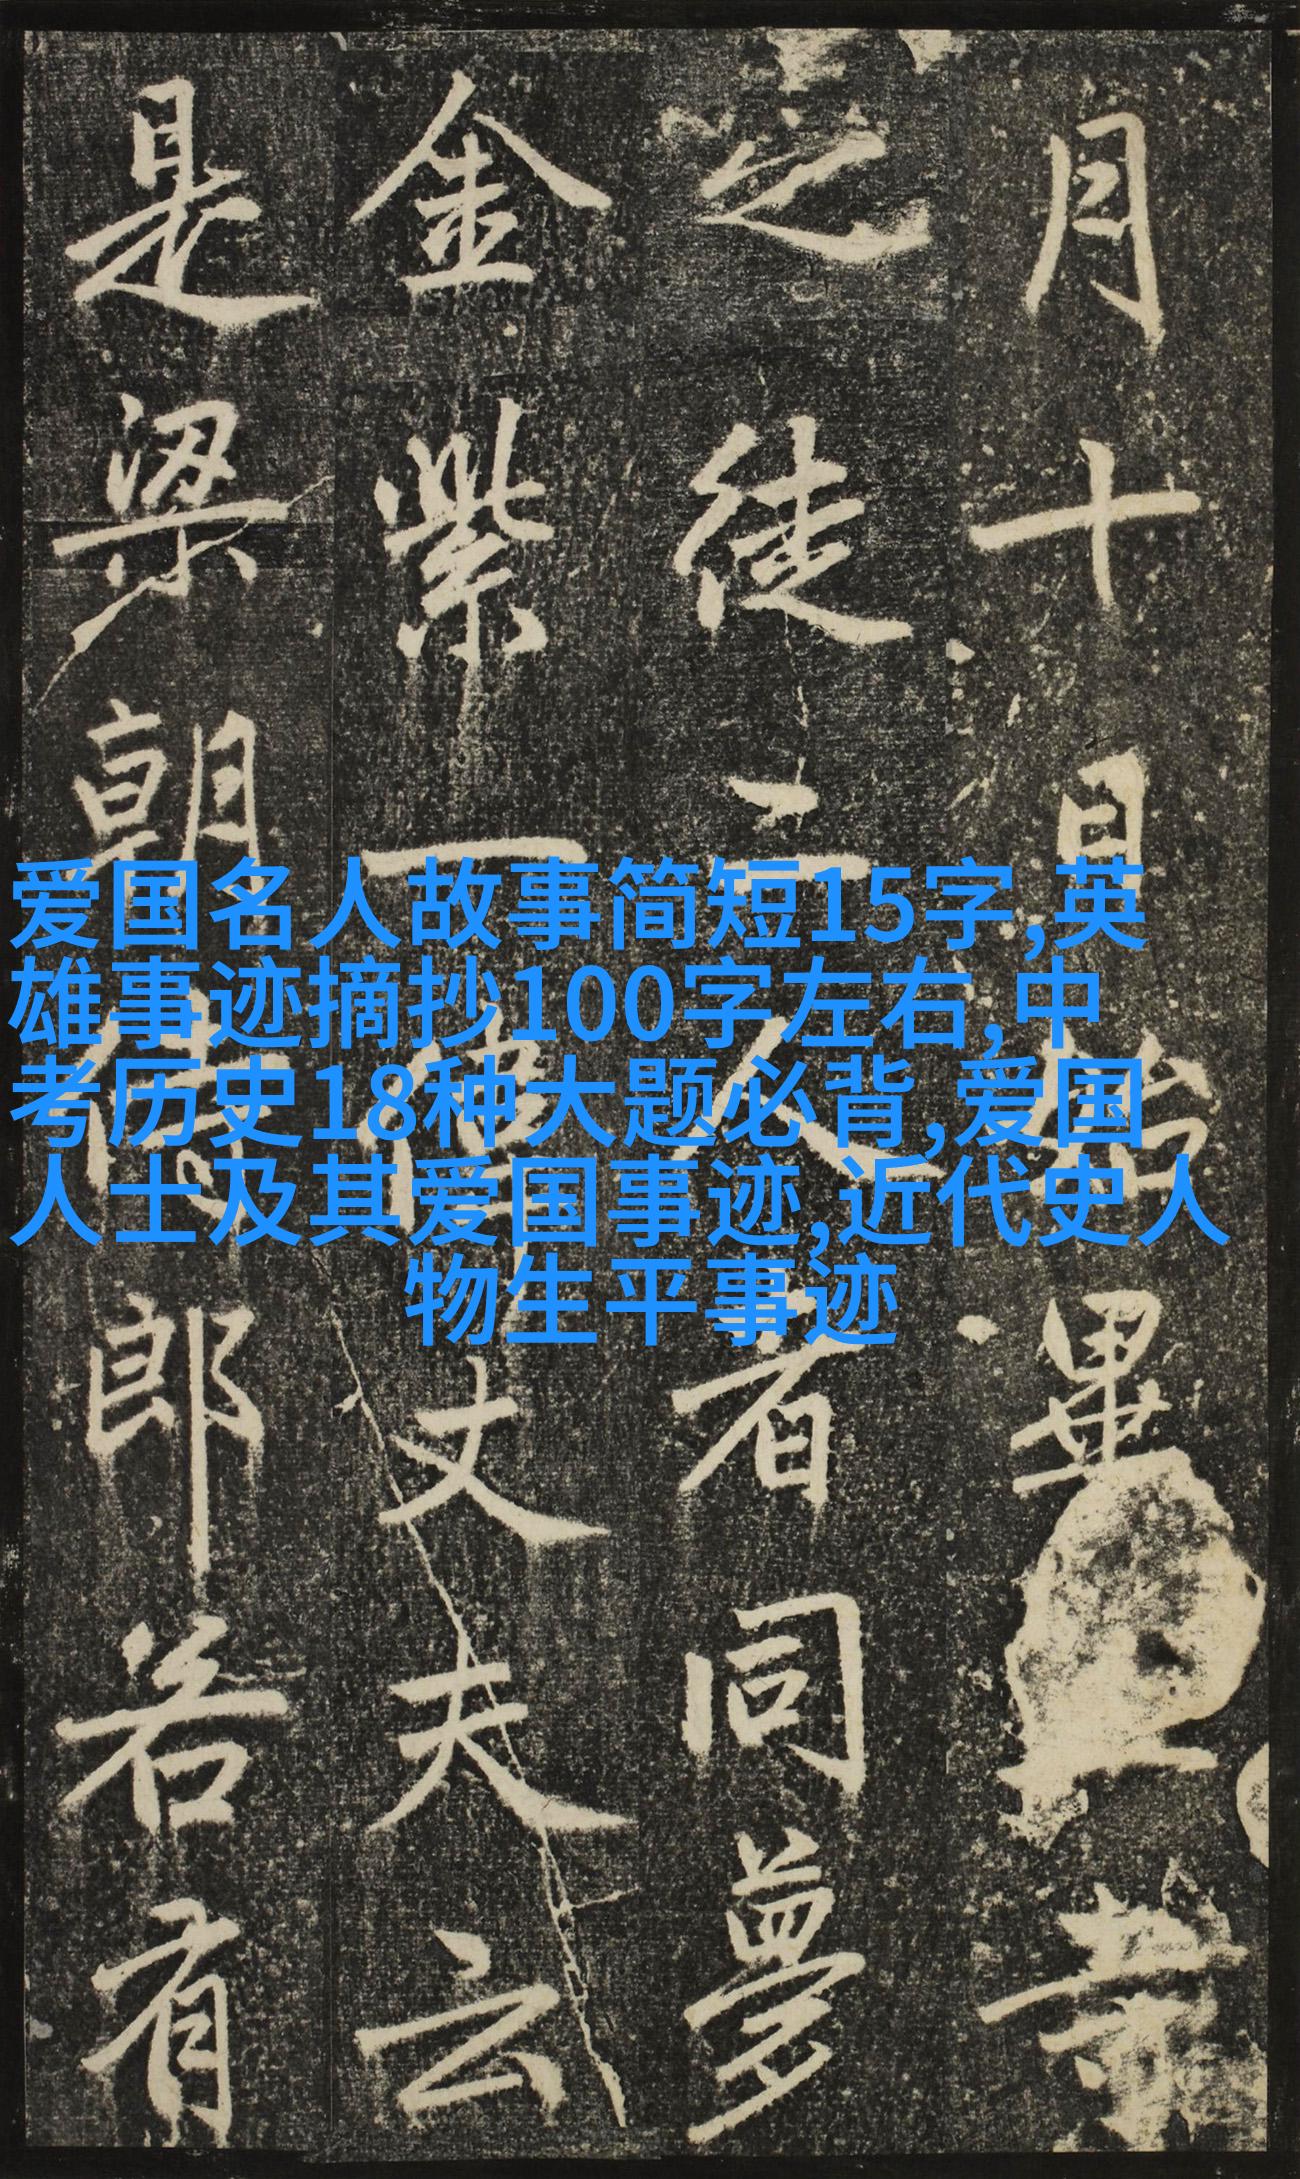 月十日始畢
之徒二人者同夢
金紫一偉丈夫云
是梁朝侍郎若有
爱国名人故事简短15字,英
雄事迹摘抄100字左右,中
考历史18种大题必背,爱国
人士及其爱国事迹,近代史人
物生平事迹